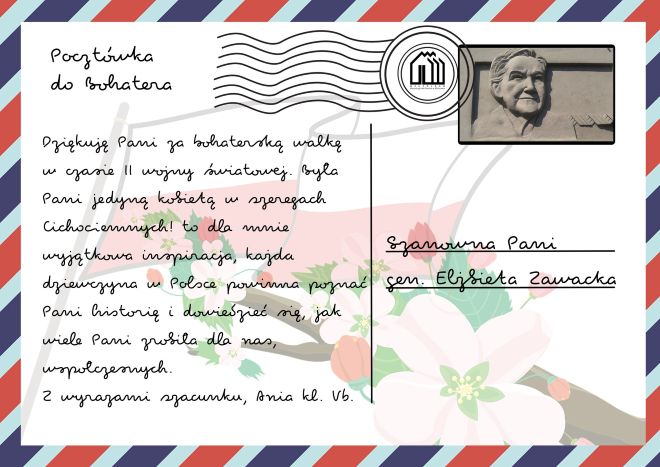 Pocztówka
do Bohatera
Dziękuję Pani za bohaterską walkę
w czasie II wojny światowej. Była
Pani jedyną kobietą w szeregach
Cichociemnych! to dla mnie
wyjątkowa inspiracja, każda
dziewczyna w Polsce powinna poznać
Pani historię i dowiedzieć się, jak
wiele Pani zrobiła dla nas,
współczesnych.
Z wyrazami szacunku, Ania kl. Vb.
Szanowna Pani
gen. Elżbieta Zawacka